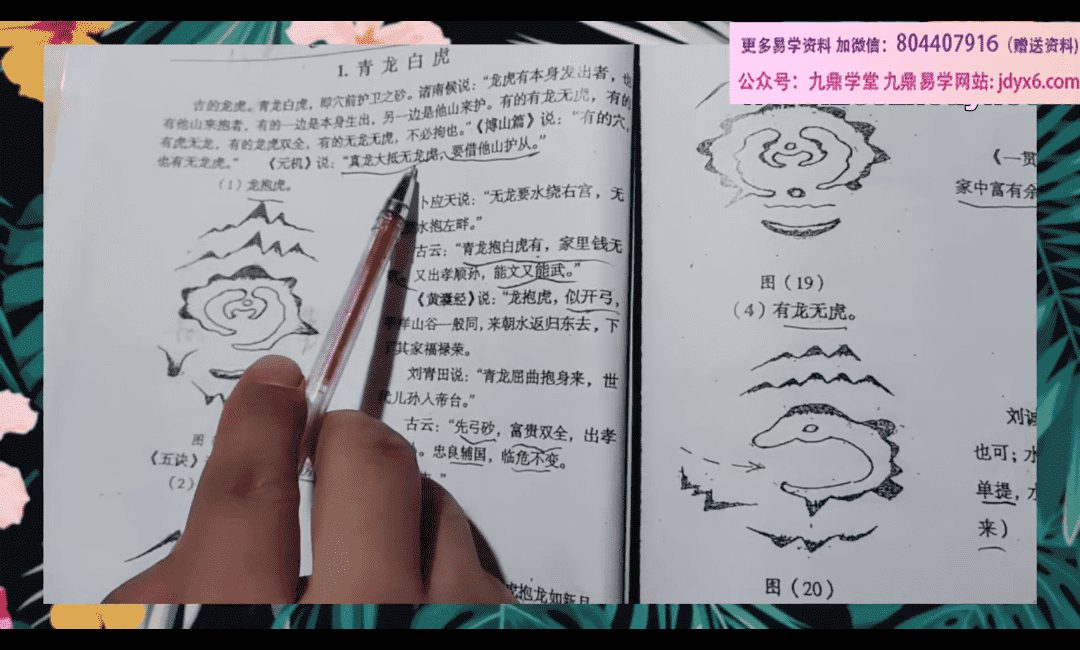 更多易学资料 加微信：804407916（赠送资料）
公众号：九鼎学堂 九鼎易学网站: jdyx6.com
1. 青龙白虎
吉的龙虎。青龙白虎，即穴前护卫之砂。诸南候说：“龙虎有本身发出者，也
有他山来抱者，有的一边是本身生出，另一边是他山来护。有的有龙无虎，有的
有虎无龙，有的龙虎双全，有的无龙无虎，不必拘也。”《博山篇》说：“有的穴，
也有无龙虎。” 《元机》说：“真龙大抵无龙虎，要借他山护从。”
（1）龙抱虎。
卜应天说：“无龙要水绕右宫，无
水抱左畔。”
古云：“青龙抱白虎有，家里钱无
又出孝顺孙，能文又能武。”
《黄囊经》说：“龙抱虎，似开弓，
洋山谷一般同，来朝水返归东去，下
其家福禄荣。
刘青田说：“青龙屈曲抱身来，世
代儿孙人帝台。”
古云：“先弓砂，富贵双全，出孝
忠良辅国，临危不变。
图
《五诀》
（2）
抱龙如新月
《一贯
家中富有余
图（19）
（4）有龙无虎。
刘诚
也可；水
单提，
来）
图（20）